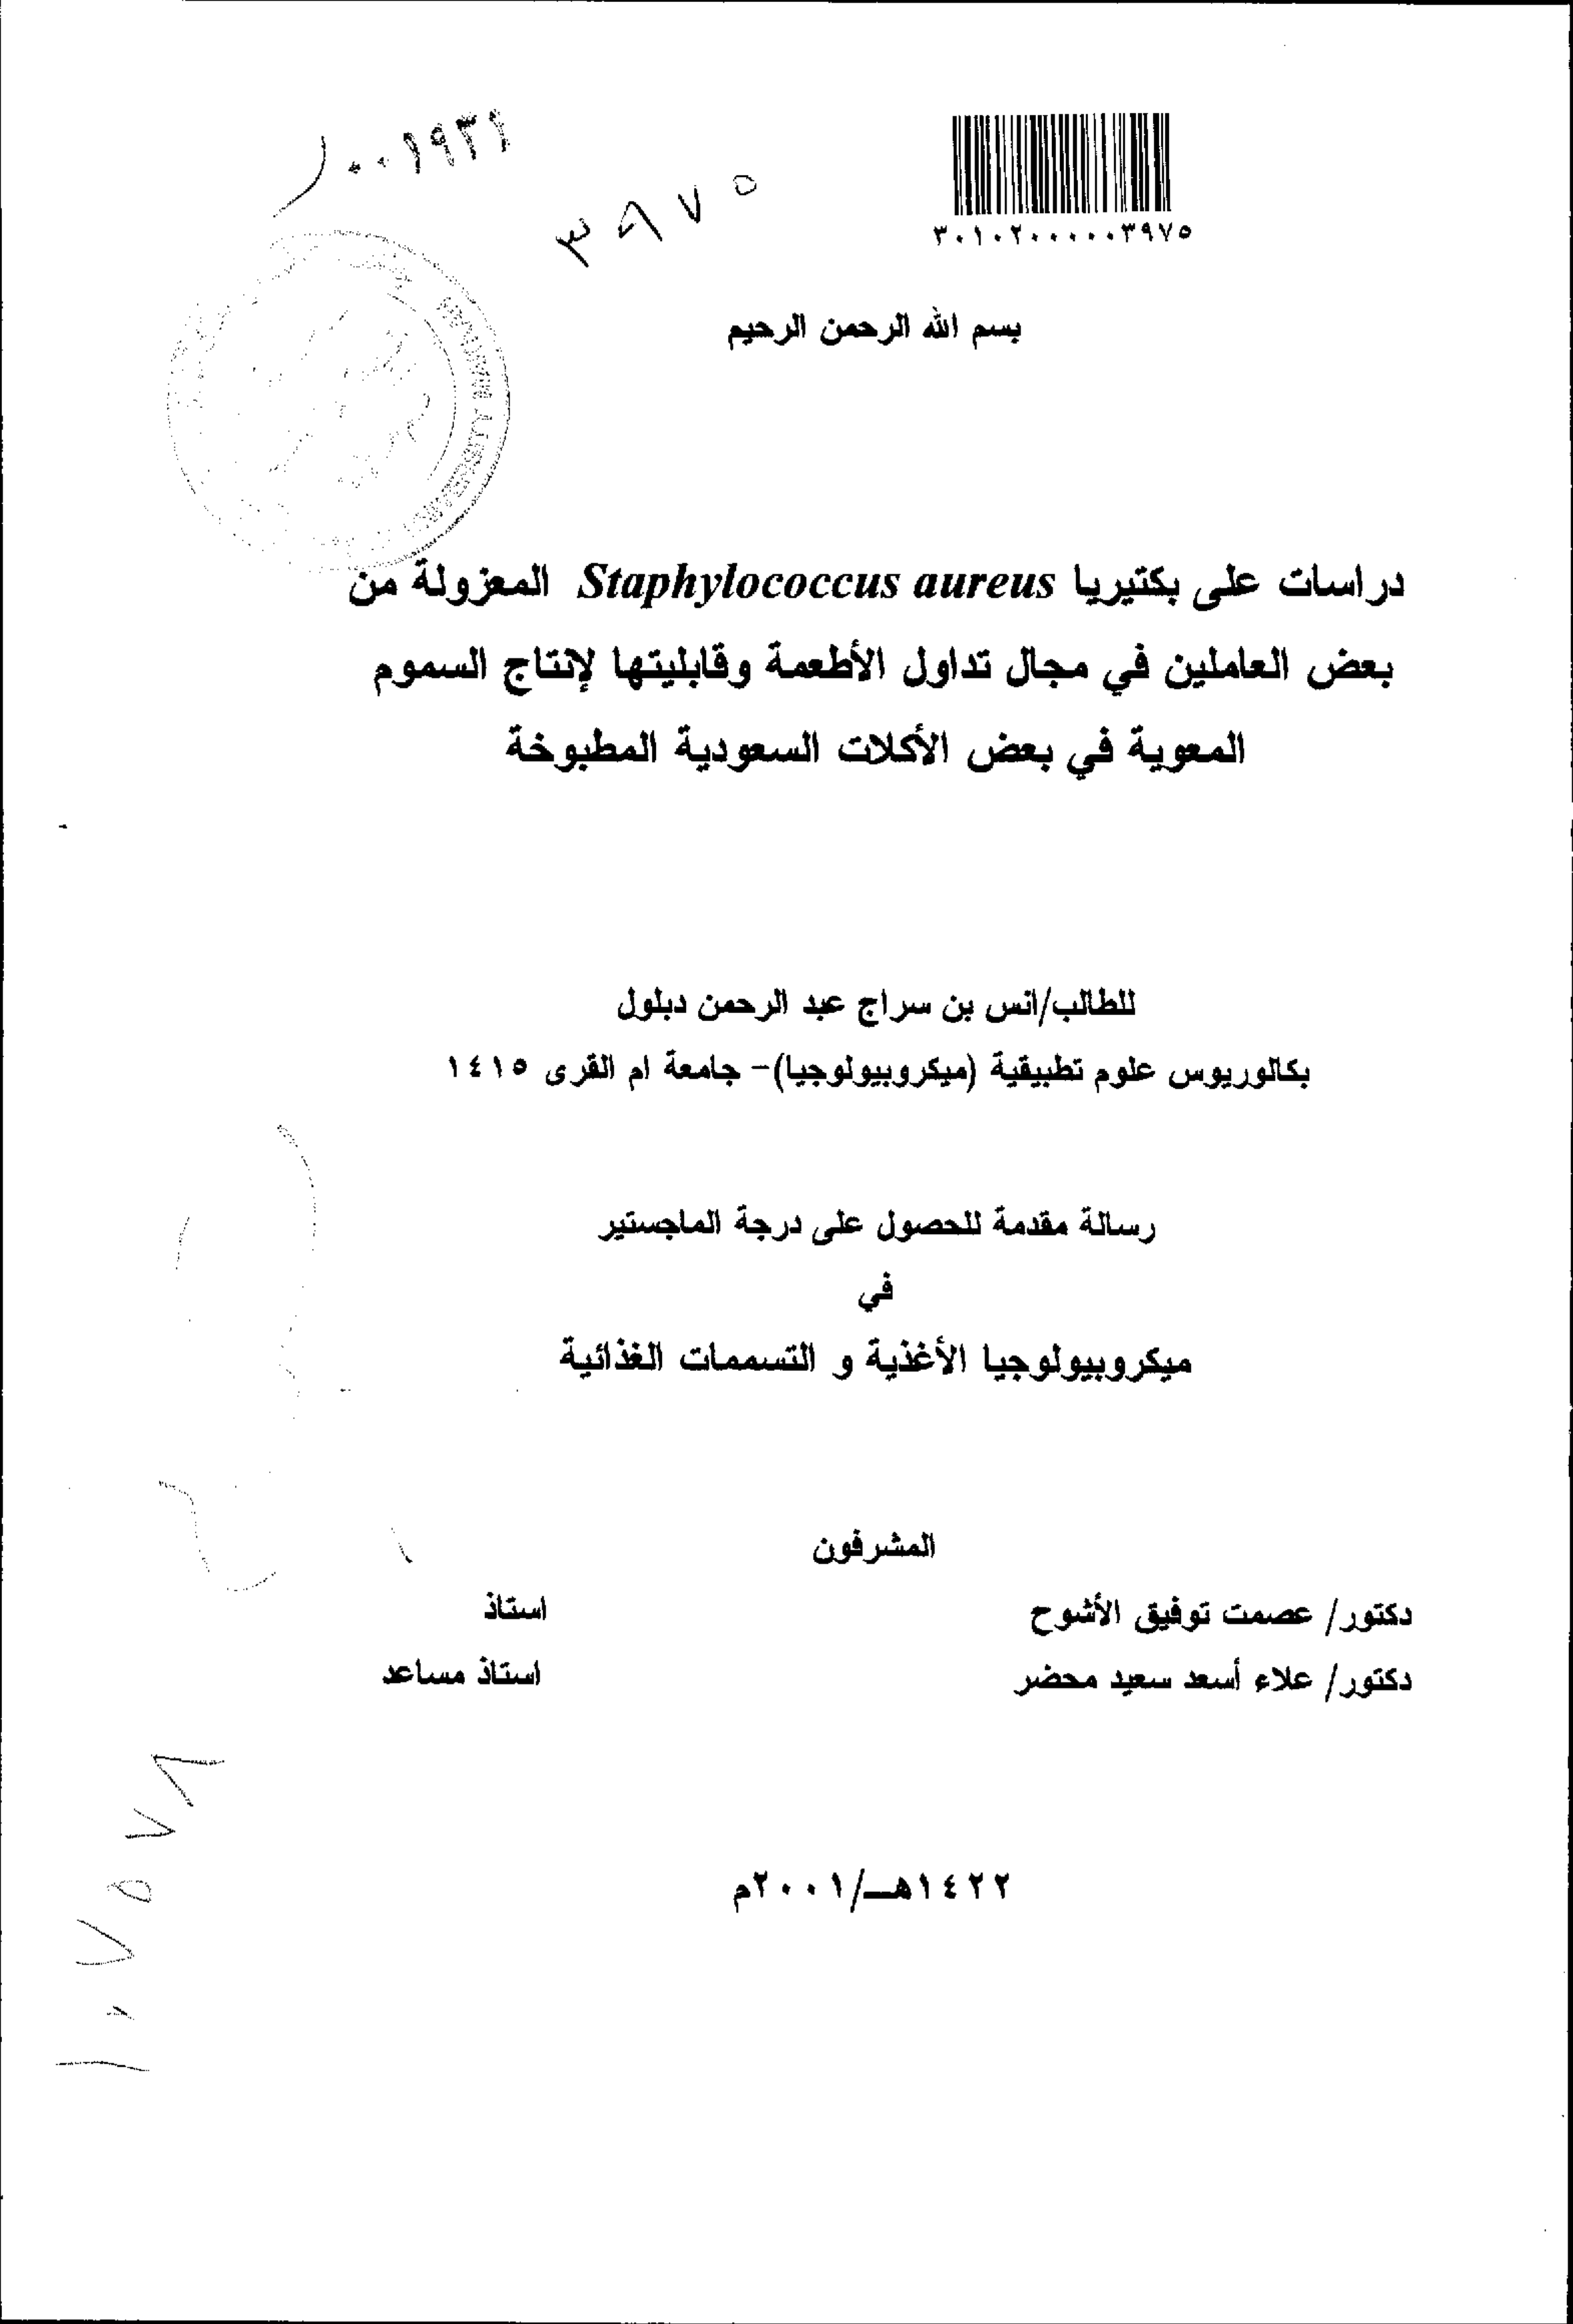 ٣٩٧٥
٣٠١٠٢٠٠٠٠٠٣٩٧٥
بسم الله الرحمن الرحيم
دراسات على بكتيريا Staphylococcus aureus المعزولة من
بعض العاملين في مجال تداول الأطعمة وقابليتها لإنتاج السموم
المعوية في بعض الأكلات السعودية المطبوخة
للطالب/انس بن سراج عبد الرحمن دبلول
بكالوريوس علوم تطبيقية (ميكروبيولوجيا)- جامعة ام القرى ١٤١٥
رسالة مقدمة للحصول على درجة الماجستير
في
ميكروبيولوجيا الأغذية و التسممات الغذائية
المشرفون
دكتور/ عصمت توفيق الأشوح استاذ
دكتور/ علاء أسعد سعيد محضر استاذ مساعد
١٤٢٢هـ/٢٠٠١م
١٠٧٥٧٨